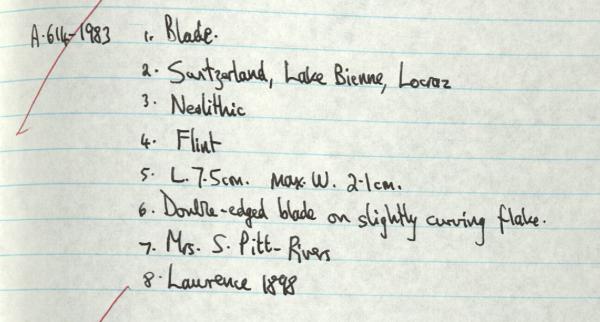 A.614-1983 1. Blade.
2. Switzerland, Lake Bienne, Locraz
3. Neolithic
4. Flint
5. L. 7.5cm. Max. W. 2.1cm.
6. Double-edged blade on slightly curving flake.
7. Mrs. S. Pitt-Rivers
8. Lawrence 1898